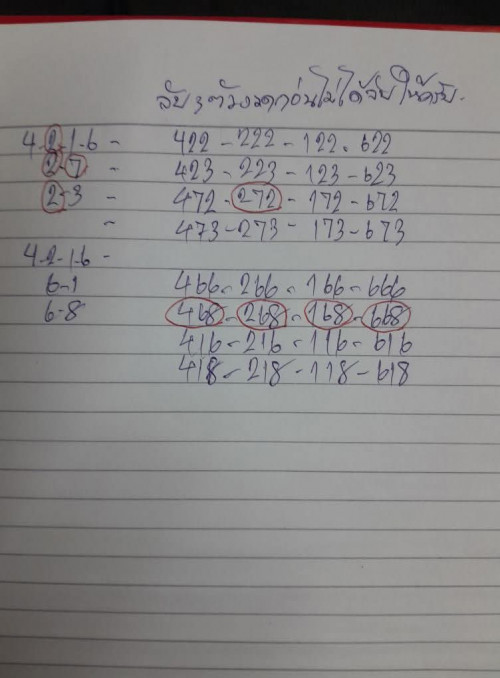 จับ 3 ตัวงวดก่อนไม่ได้จับให้ครับ.
4-2-1-6 - 422-222-122-622
2-7 - 423-223-123-623
2-3 - 472-272-172-672
- 473-273-173-673
4-2-1-6-
6-1 466-266-166-666
6-8 468-268-168-668
416-216-116-616
418-218-118-618